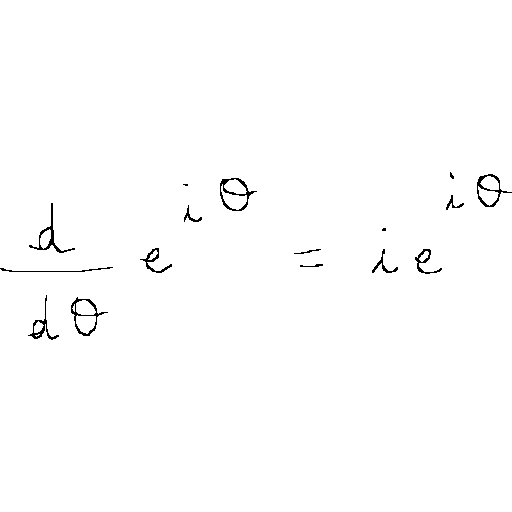 \frac{d}{d\theta} e^{i\theta} = i e^{i\theta}